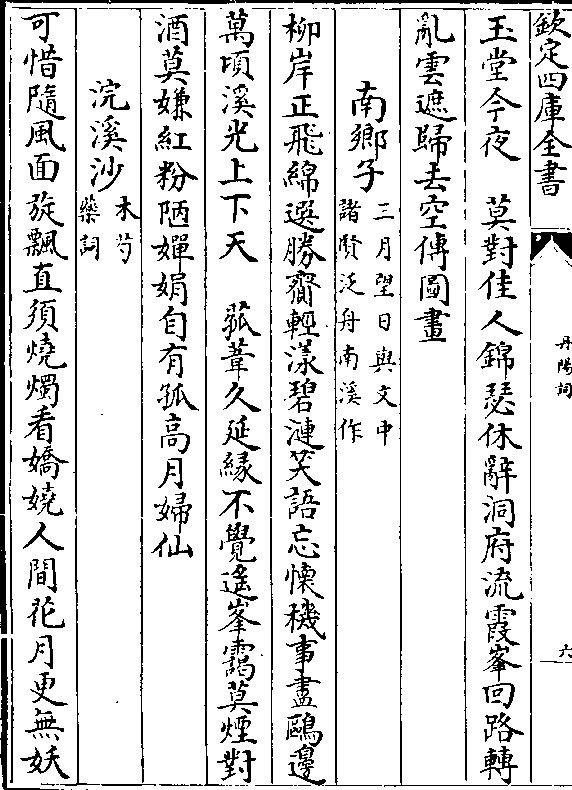 欽定四庫全書
丹陽詞
六
玉堂今夜　莫對佳人錦瑟休辭洞府流霞峯回路轉
亂雲遮歸去空傳圖畫
南鄉子
三月望日與文中
諸賢泛舟南溪作
柳岸正飛綿選勝齎輕漾碧漣笑語忘懷機事盡鷗邊
萬頃溪光上下天　菰葦久延緣不覺遙峯靄莫煙對
酒莫嫌紅粉陋嬋娟自有孤高月婦仙
浣溪沙
木芍
藥詞
可惜隨風面旋飄直須燒燭看嬌嬈人間花月更無妖